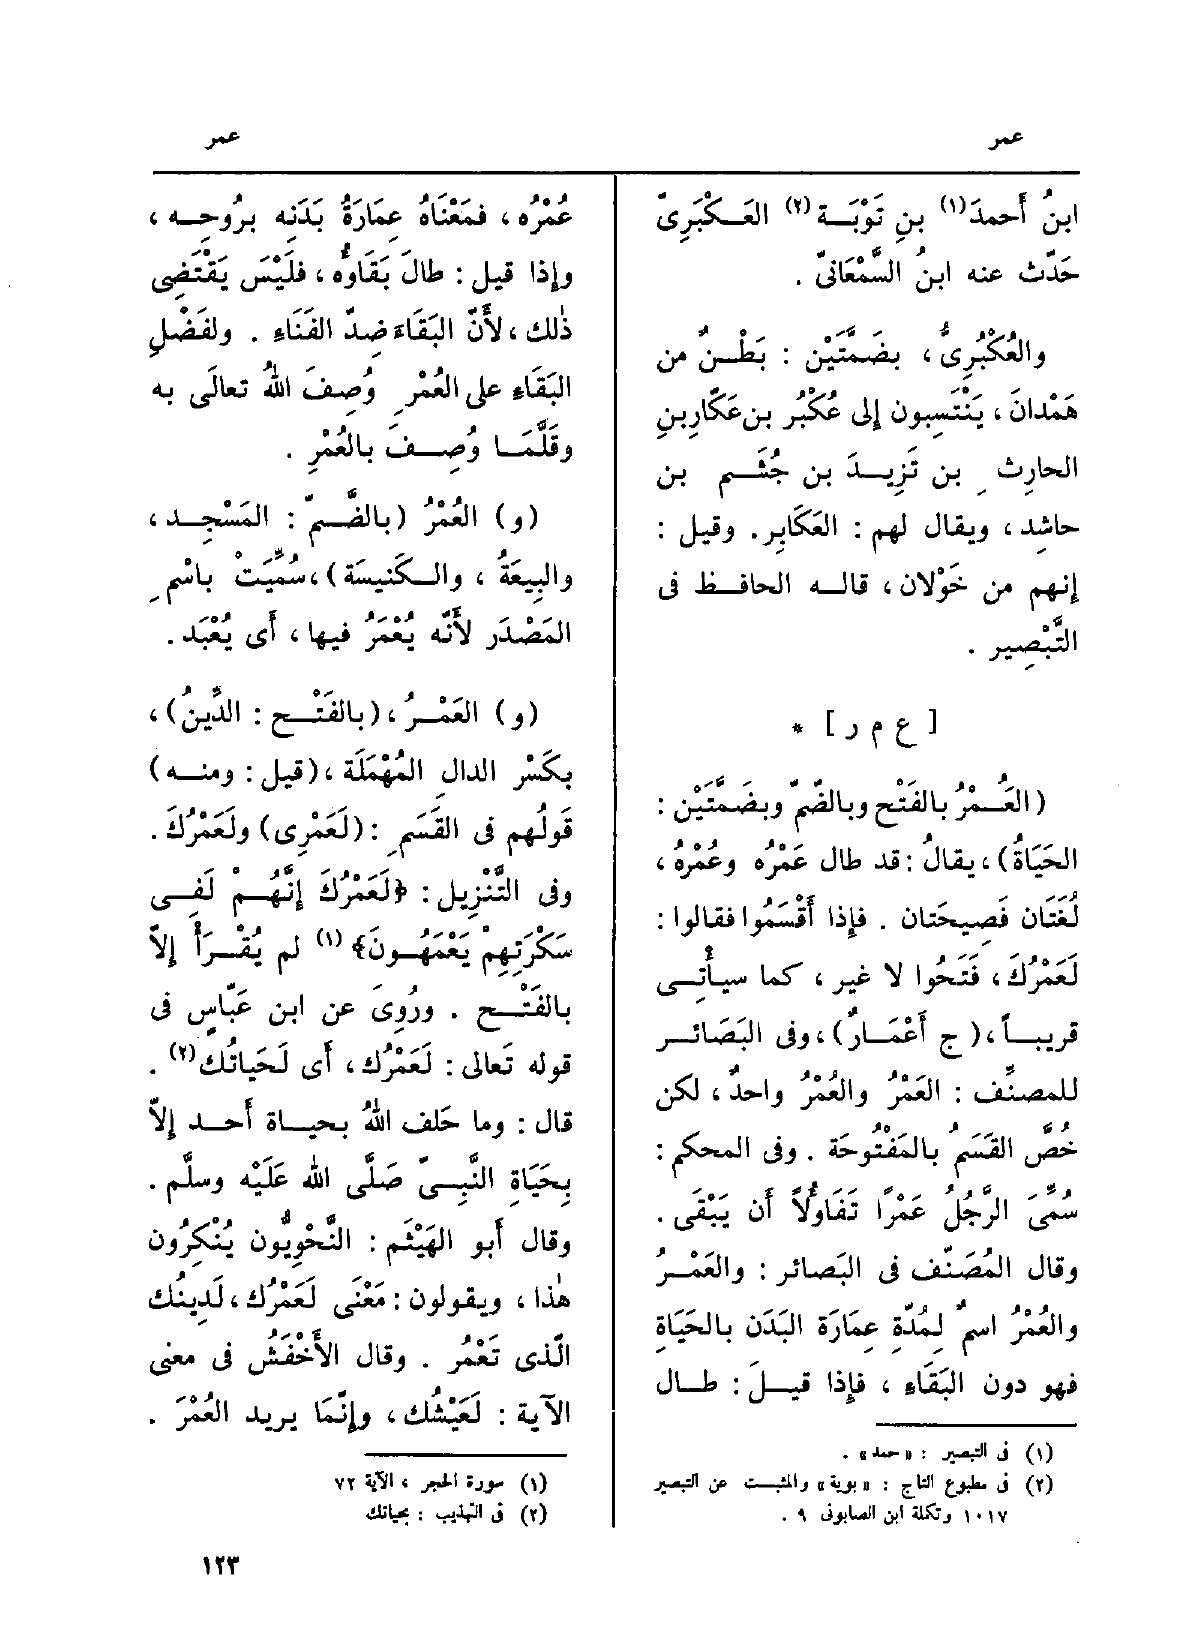 عمر
عمر
ابنُ أَحمدَ (١) بنِ تَوْبَـة (٢) العَـكْبَرِىّ
حَدّث عنه ابنُ السَّمْعَانىّ .
والعُكْبُرِىُّ ، بضَمَّتَيْن : بَطْـنٌ من
هَمْدانَ ، يَنْتَسِبون إلى عُكْبُر بن عَكّارِ بنِ
الحارِث بن تَزِيـدَ بن جُشَـم بن
حاشِد ، ويقال لهم : العَكَابِر . وقيل :
إنهم من خَوْلان ، قالـه الحافـظ فى
التَّبْصِير .
[ ع م ر ] *
(العَـمْرُ بالفَتْح وبالضّمّ وبضَمَّتَيْن :
الحَيَاةُ) ، يقالُ : قد طال عَمْرُه وعُمْرُه ،
لُغَتَان فَصِيحَتان . فإذا أَقْسَمُوا فقالوا :
لَعَمْرُكَ ، فَتَحُوا لا غير ، كما سيأْتِـى
قريبـاً ، ( ج أَعْمَـارٌ ) ، وفى البَصَائـر
للمصنِّف : العَمْرُ والعُمْرُ واحدٌ ، لكن
خُصَّ القَسَمُ بالمَفْتُوحَة . وفى المحكم :
سُمِّىَ الرَّجُلُ عَمْرًا تَفَاؤُلاً أَن يَبْقَى .
وقال المُصَنّف فى البَصائر : والعَمْـرُ
والعُمْرُ اسمٌ لِمُدّةِ عِمَارَة البَدَن بالحَيَاةِ
فهو دون البَقَاءِ ، فإِذا قيـلَ : طـال
(١) فى التبصير : « حمد » .
(٢) فى مطبوع التاج : « بوية » والمثبت عن التبصير
١٠١٧ وتكملة ابن الصابونى ٩ .
عُمْرُه ، فمَعْنَاهُ عِمَارَةُ بَدَنِه برُوحِـه ،
وإذا قيل : طالَ بَقَاوُّه ، فلَيْسَ يَقْتَضِى
ذٰلك ، لأَنّ البَقَاءَ ضِدّ الفَنَاءِ . ولفَضْلِ
البَقَاءِ على العُمْرِ وُصِـفَ اللهُ تعالَى به
وقَلَّمَـا وُصِـفَ بالعُمْرِ .
(و) العُمْرُ (بالضَّـمّ : المَسْجِـد ،
والبِيعَةُ ، والـكَنِيسَة) ، سُمِّيَتْ باسْمِ
المَصْدَر لأَنَّه يُعْمَرُ فيها ، أَى يُعْبَد .
(و) العَمْـرُ ، (بالفَتْـح : الدِّينُ) ،
بكَسْرِ الدال المُهْمَلَة ، (قيل : ومنـه)
قَولُهم فى القَسَمِ : (لَعَمْرِى) ولَعَمْرُكَ .
وفى التَّنْزِيل : ﴿لَعَمْرُكَ إنَّهُـمْ لَفِـى
سَكْرَتِهِمْ يَعْمَهُـونَ﴾ (١) لم يُقْـرَأْ إلاّ
بالفَتْـح . ورُوِىَ عن ابن عَبّاسٍ فى
قوله تَعالى : لَعَمْرُك ، أَى لَحَيَاتُك (٢) .
قال : وما حَلف اللهُ بحيـاة أَحـد إلاّ
بِحَيَاةِ النَّبِـىّ صَلَّى الله عَلَيْه وسلَّم .
وقال أَبو الهَيْثم : النَّحْوِيُّون يُنْكِرُون
هٰذا ، ويقولون : مَعْنَى لَعَمْرُك ، لَدِينُك
الّذى تَعْمُر . وقال الأَخْفَش فى معنى
الآية : لَعَيْشُك ، وإنّمَا يريد العُمْرَ .
(١) سورة الحجر ، الآية ٧٢
(٢) فى التهذيب : بحياتك
١٢٣